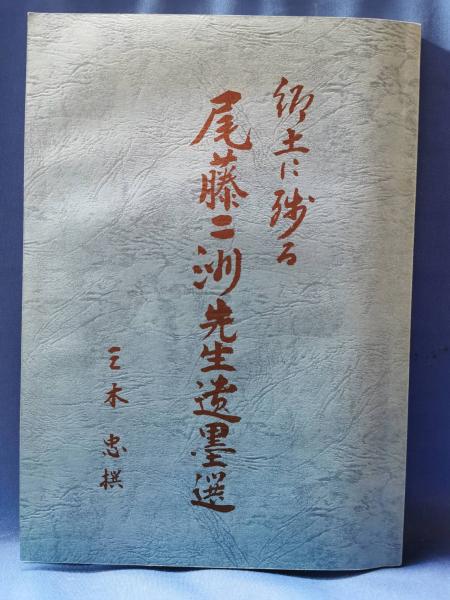 郷土に残る
尾藤二洲先生遺墨選
三木忠撰